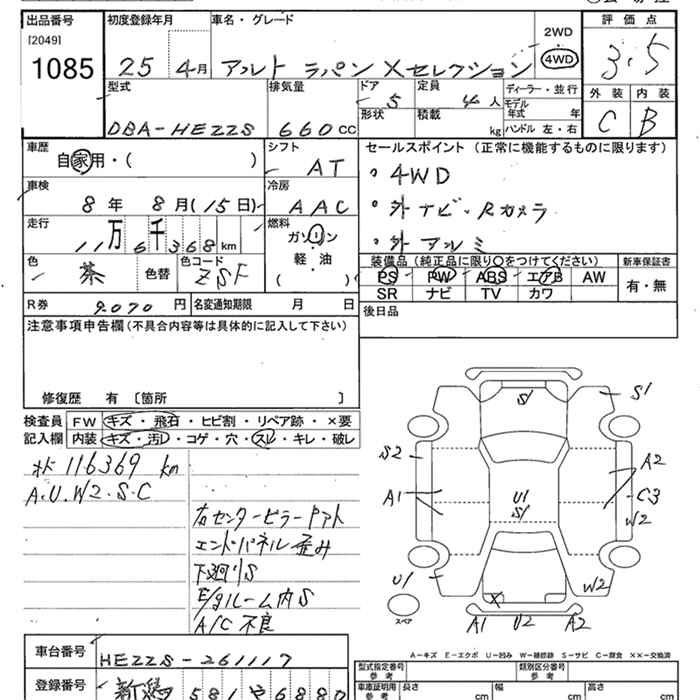 出品番号
[2049]
1085
初度登録年月
25 4月
車名・グレード
アルト ラパン Xセレクション
2WD
4WD
評価点
3.5
型式
DBA-HE22S
排気量
660cc
ドア
5
形状
定員
4人
積載
kg
ディーラー・並行
モデル年式 年
ハンドル 左・右
外装
C
内装
B
車歴
自家用・( )
シフト
AT
セールスポイント(正常に機能するものに限ります)
・4WD
・外ナビ・Rカメラ
・外アルミ
車検
8年 8月(15日)
冷房
AAC
走行
11万6千368km
燃料
ガソリン
軽・油
( )
色
茶
色替
色コード
ZSF
装備品(純正品に限り○をつけてください)
PS PW ABS エアB AW
SR ナビ TV カワ
新車保証書
有・無
R券
9070円
名変通知期限 月 日
後日品
注意事項申告欄(不具合内容等は具体的に記入して下さい)
修復歴 有 〔箇所 〕
検査員
記入欄
FW キズ・飛石・ヒビ割・リペア跡・×要
内装 キズ・汚レ・コゲ・穴・スレ・キレ・破レ
116369 km
A.U.W2.S.C
右センターピラー
エンドパネル歪み
下廻りS
E/gルーム内S
A/C不良
S1
S1
S2
A1
A2
U1
S1
C3
W2
U1
W2
X
スペア
A1 U2 A2
A-キズ E-エクボ U-凹み W-補修跡 S-サビ C-腐食 ××-交換済
車台番号
HE22S-261117
登録番号
581 6880
型式指定番号
参考
類別区分番号
参考
車庫証明用
参考
長さ cm
幅 cm
高さ cm